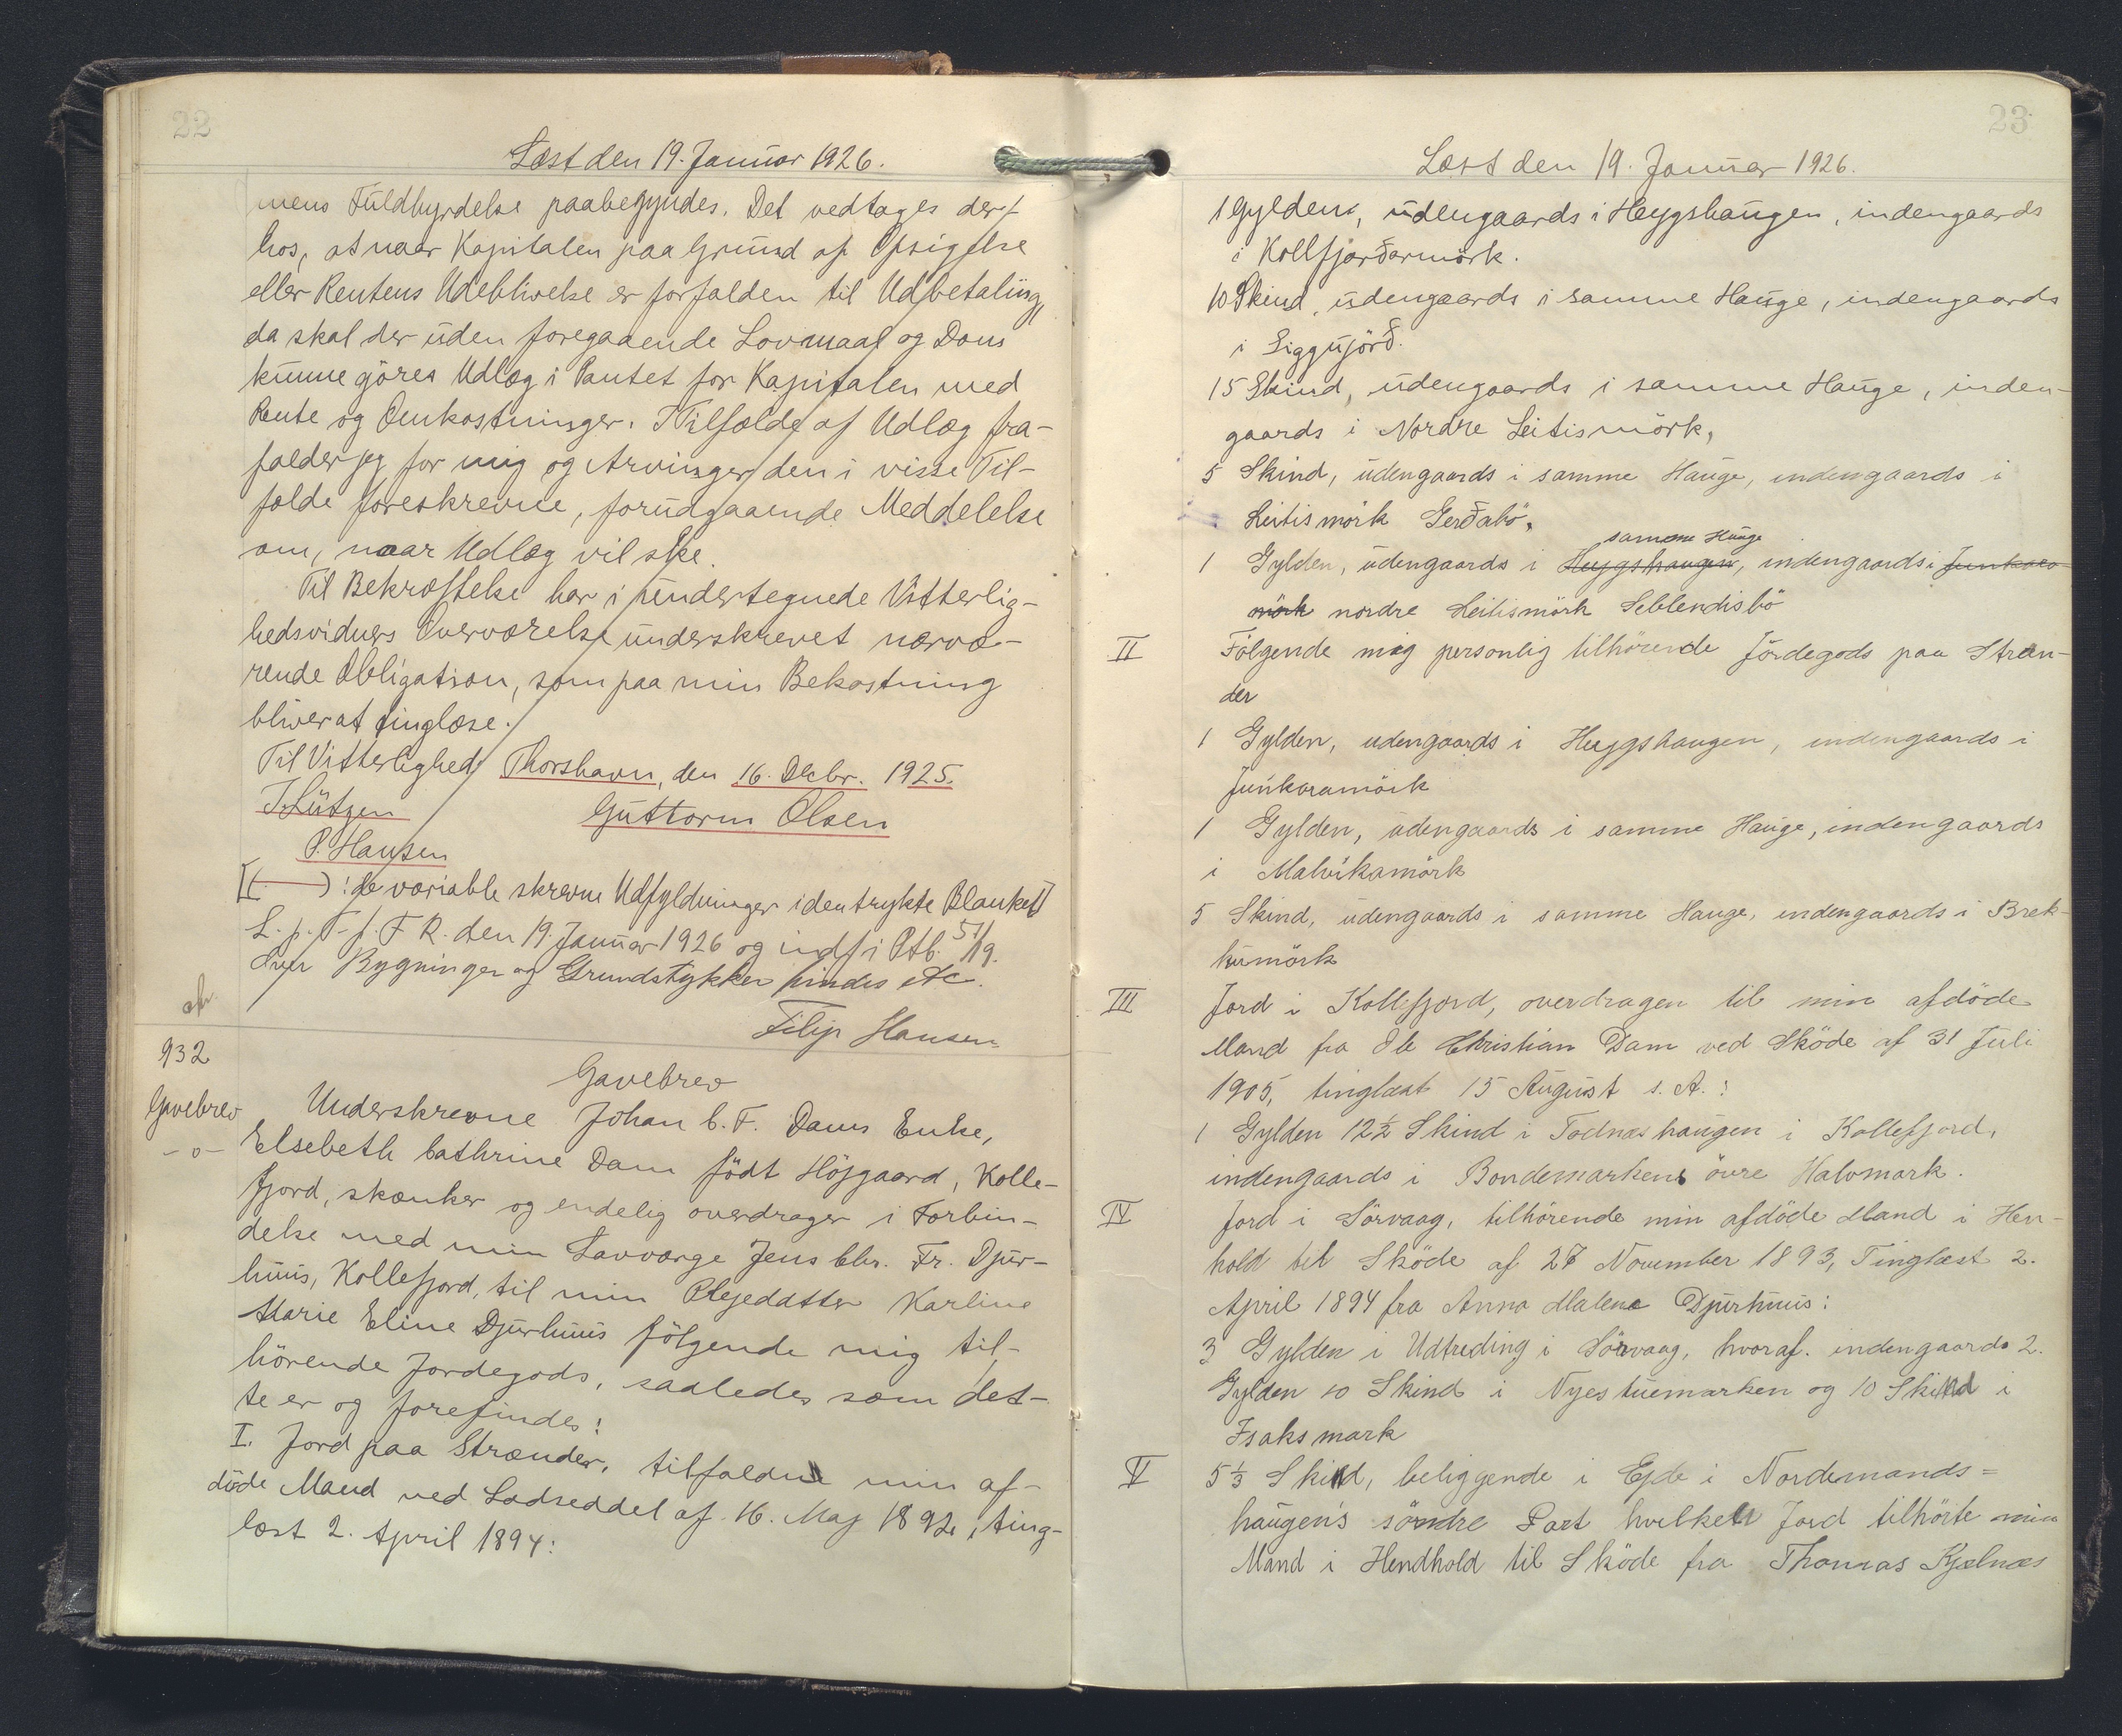 22
Læst den 19. Januar 1926.
mens Fuldbyrdelse paabegyndes. Det vedtages der-
hos, at naar Kapitalen paa Grund af Opsigelse
eller Rentens Udeblivelse er forfalden til Udbetaling,
da skal der uden foregaaende Lovmaal og Dom
kunne göres Udlæg i Pantet for Kapitalen med
Rente og Omkostninger. I Tilfælde af Udlæg fra-
falder jeg for mig og Arvinger den i visse Til-
fælde foreskrevne, forudgaaende Meddelelse
om, naar Udlæg vil ske.
Til Bekræftelse har i undertegnede Vitterlig-
hedsvidners Overværelse underskrevet nærvæ-
rende Obligation, som paa min Bekostning
bliver at tinglæse.
Til Vitterlighed Thorshavn, den 16. Decbr. 1925.
J. Lützen Guttorm Olsen
P. Hansen
[(—) : de variable skrevne Udfyldninger i den trykte Blanket]
L. p. T. f. F R. den 19. Januar 1926 og indf i Ptb. 51/19.
Over Bygninger og Grundstykker findes etc.
Filip Hansen
932
Gavebrev
Gavebrev
-o-
Underskrevne Johan C. F. Dams Enke,
Elsebeth Cathrine Dam födt Höjgaard, Kolle-
fjord, skænker og endelig overdrager i Forbin-
delse med min Lavværge Jens Chr. Fr. Djur-
huus, Kollefjord, til min Plejedatter Karline
Marie Eline Djurhuus fölgende mig til-
hörende Jordegods, saaledes som det-
te er og forefindes:
I. Jord paa Strænder, tilfalden min af-
döde Mand ved Lodseddel af 16. Maj 1892, ting-
læst 2. April 1894:
23
Læst den 19. Januar 1926.
1 Gylden, udengaards i Heygshaugen, indengaards
i Kollfjarðarmörk.
10 Skind, udengaards i samme Hauge, indengaards
i Siggujörð.
15 Skind, udengaards i samme Hauge, inden-
gaards i Nordre Leitismörk,
5 Skind, udengaards i samme Hauge, indengaards i
Leitismörk Gerðabö,
samme Hauge
1 Gylden, udengaards i Heygshaugen, indengaards i Junkara
mörk nordre Leitismörk Seblendisbö
II Fölgende mig personlig tilhörende Jördegods paa Stræn-
der
1 Gylden, udengaards i Heygshaugen, indengaards i
Junkaramörk
1 Gylden, udengaards i samme Hauge, indengaards
i Malvikamörk
5 Skind, udengaards i samme Hauge, indengaards i Brek-
kumörk
III Jord i Kollefjord, overdragen til min afdöde
Mand fra Ole Christian Dam ved Sköde af 31 Juli
1905, tinglæst 15 August s. A.:
1 Gylden 12½ Skind i Todnæshaugen i Kollefjord,
indengaards i Bondemarkens övre Halvmark.
IV Jord i Sörvaag, tilhörende min afdöde Mand i Hen-
hold til Sköde af 27 November 1893, Tinglæst 2.
April 1894 fra Anna Malene Djurhuus:
3 Gylden i Udtreding i Sörvaag, hvoraf. indengaards 2.
Gylden 10 Skind i Nyestuemarken og 10 Skind i
Isaksmark
V 5⅓ Skind, beliggende i Ejde i Nordemands=
haugens söndre Part hvilken Jord tilhörte min
Mand i Hendhold til Sköde fra Thomas Kjelnæs